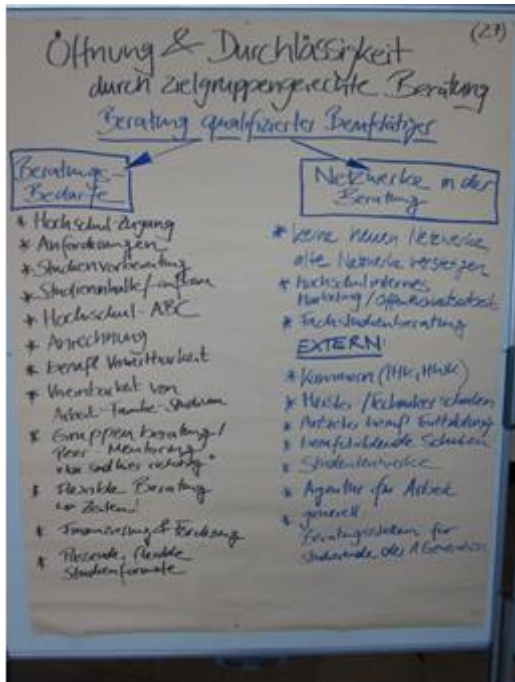 (27)
Öffnung & Durchlässigkeit
durch zielgruppengerechte Beratung
Beratung qualifizierter Berufstätiger
Beratungs-
Bedarfe
* Hochschul-Zugang
* Anforderungen
* Studienvorbereitung
* Studieninhalte/
* Hochschul-ABC
* Anrechnung
* berufl.
* Vereinbarkeit von
Arbeit-Familie-Studium
* Gruppenberatung/
Peer-Mentoring
richtig"
* Flexible Beratung
Zeiten!
* Finanzierung & Förderung
* Passende, flexible
Studienformate
Netzwerke in der
Beratung
* keine neuen Netzwerke
alte Netzwerke
* hochschulinternes
Marketing/Öffentlichkeitsarbeit
* Fachstudienberatung
EXTERN
* Kammern (IHK, HWK)
* Meister/Technikerschulen
* Anbieter berufl. Fortbildung
* berufsbildende Schulen
* Studentenwerke
* Agentur für Arbeit
generell
* Beratungsstellen für
Studierende der Generation